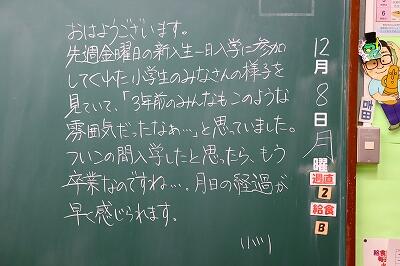 おはようございます。
先週金曜日の新入生一日入学に参加
してくれた小学生のみなさんの様子を
見ていて、「3年前のみんなもこのような
雰囲気だったなぁ…」と思っていました。
ついこの間入学したと思ったら、もう
卒業なのですね…。月日の経過が
早く感じられます。
12
月
8
日
月
曜
週直
2
給食
B
吉田